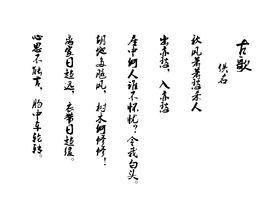 古歌
佚名
秋风萧萧愁杀人
出亦愁，入亦愁。
座中何人谁不怀忧？令我白头。
胡地多飚风，树木何修修！
离家日趋远，衣带日趋缓。
心思不能言，肠中车轮转。